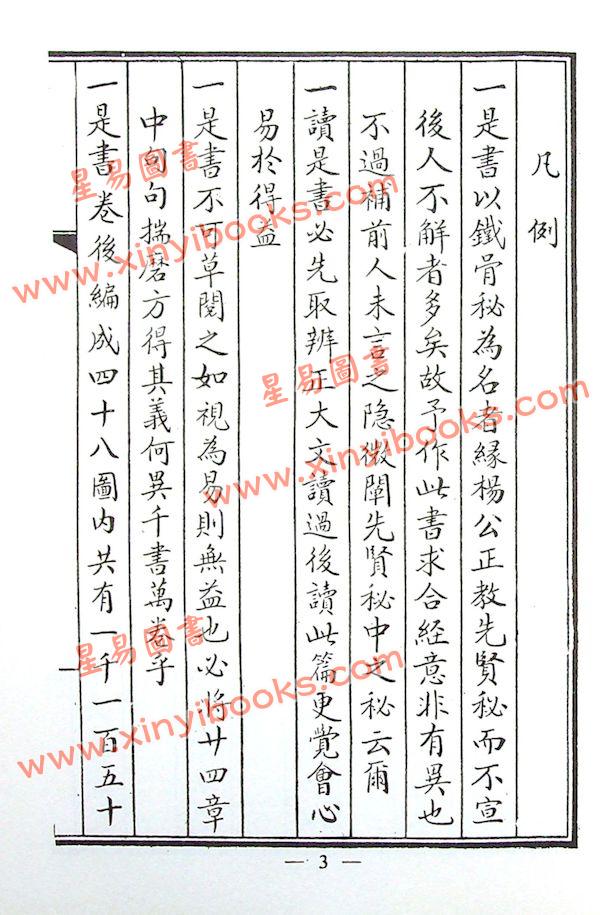 凡例
一是書以鐵骨秘為名者緣楊公正教先賢秘而不宣
後人不解者多矣故予作此書求合經意非有異也
不過補前人未言之隐微闡先賢秘中之秘云爾
一讀是書必先取辨正大文讀過後讀此篇更覺會心
易於得益
一是書不可草閱之如視為易則無益也必將廿四章
中句句揣磨方得其義何異千書萬卷乎
一是書卷後編成四十八圖内共有一千一百五十
— 3 —
星易圖書
www.xinyibooks.com
星易圖書
www.xinyibooks.com
星易圖書
www.xinyibooks.com